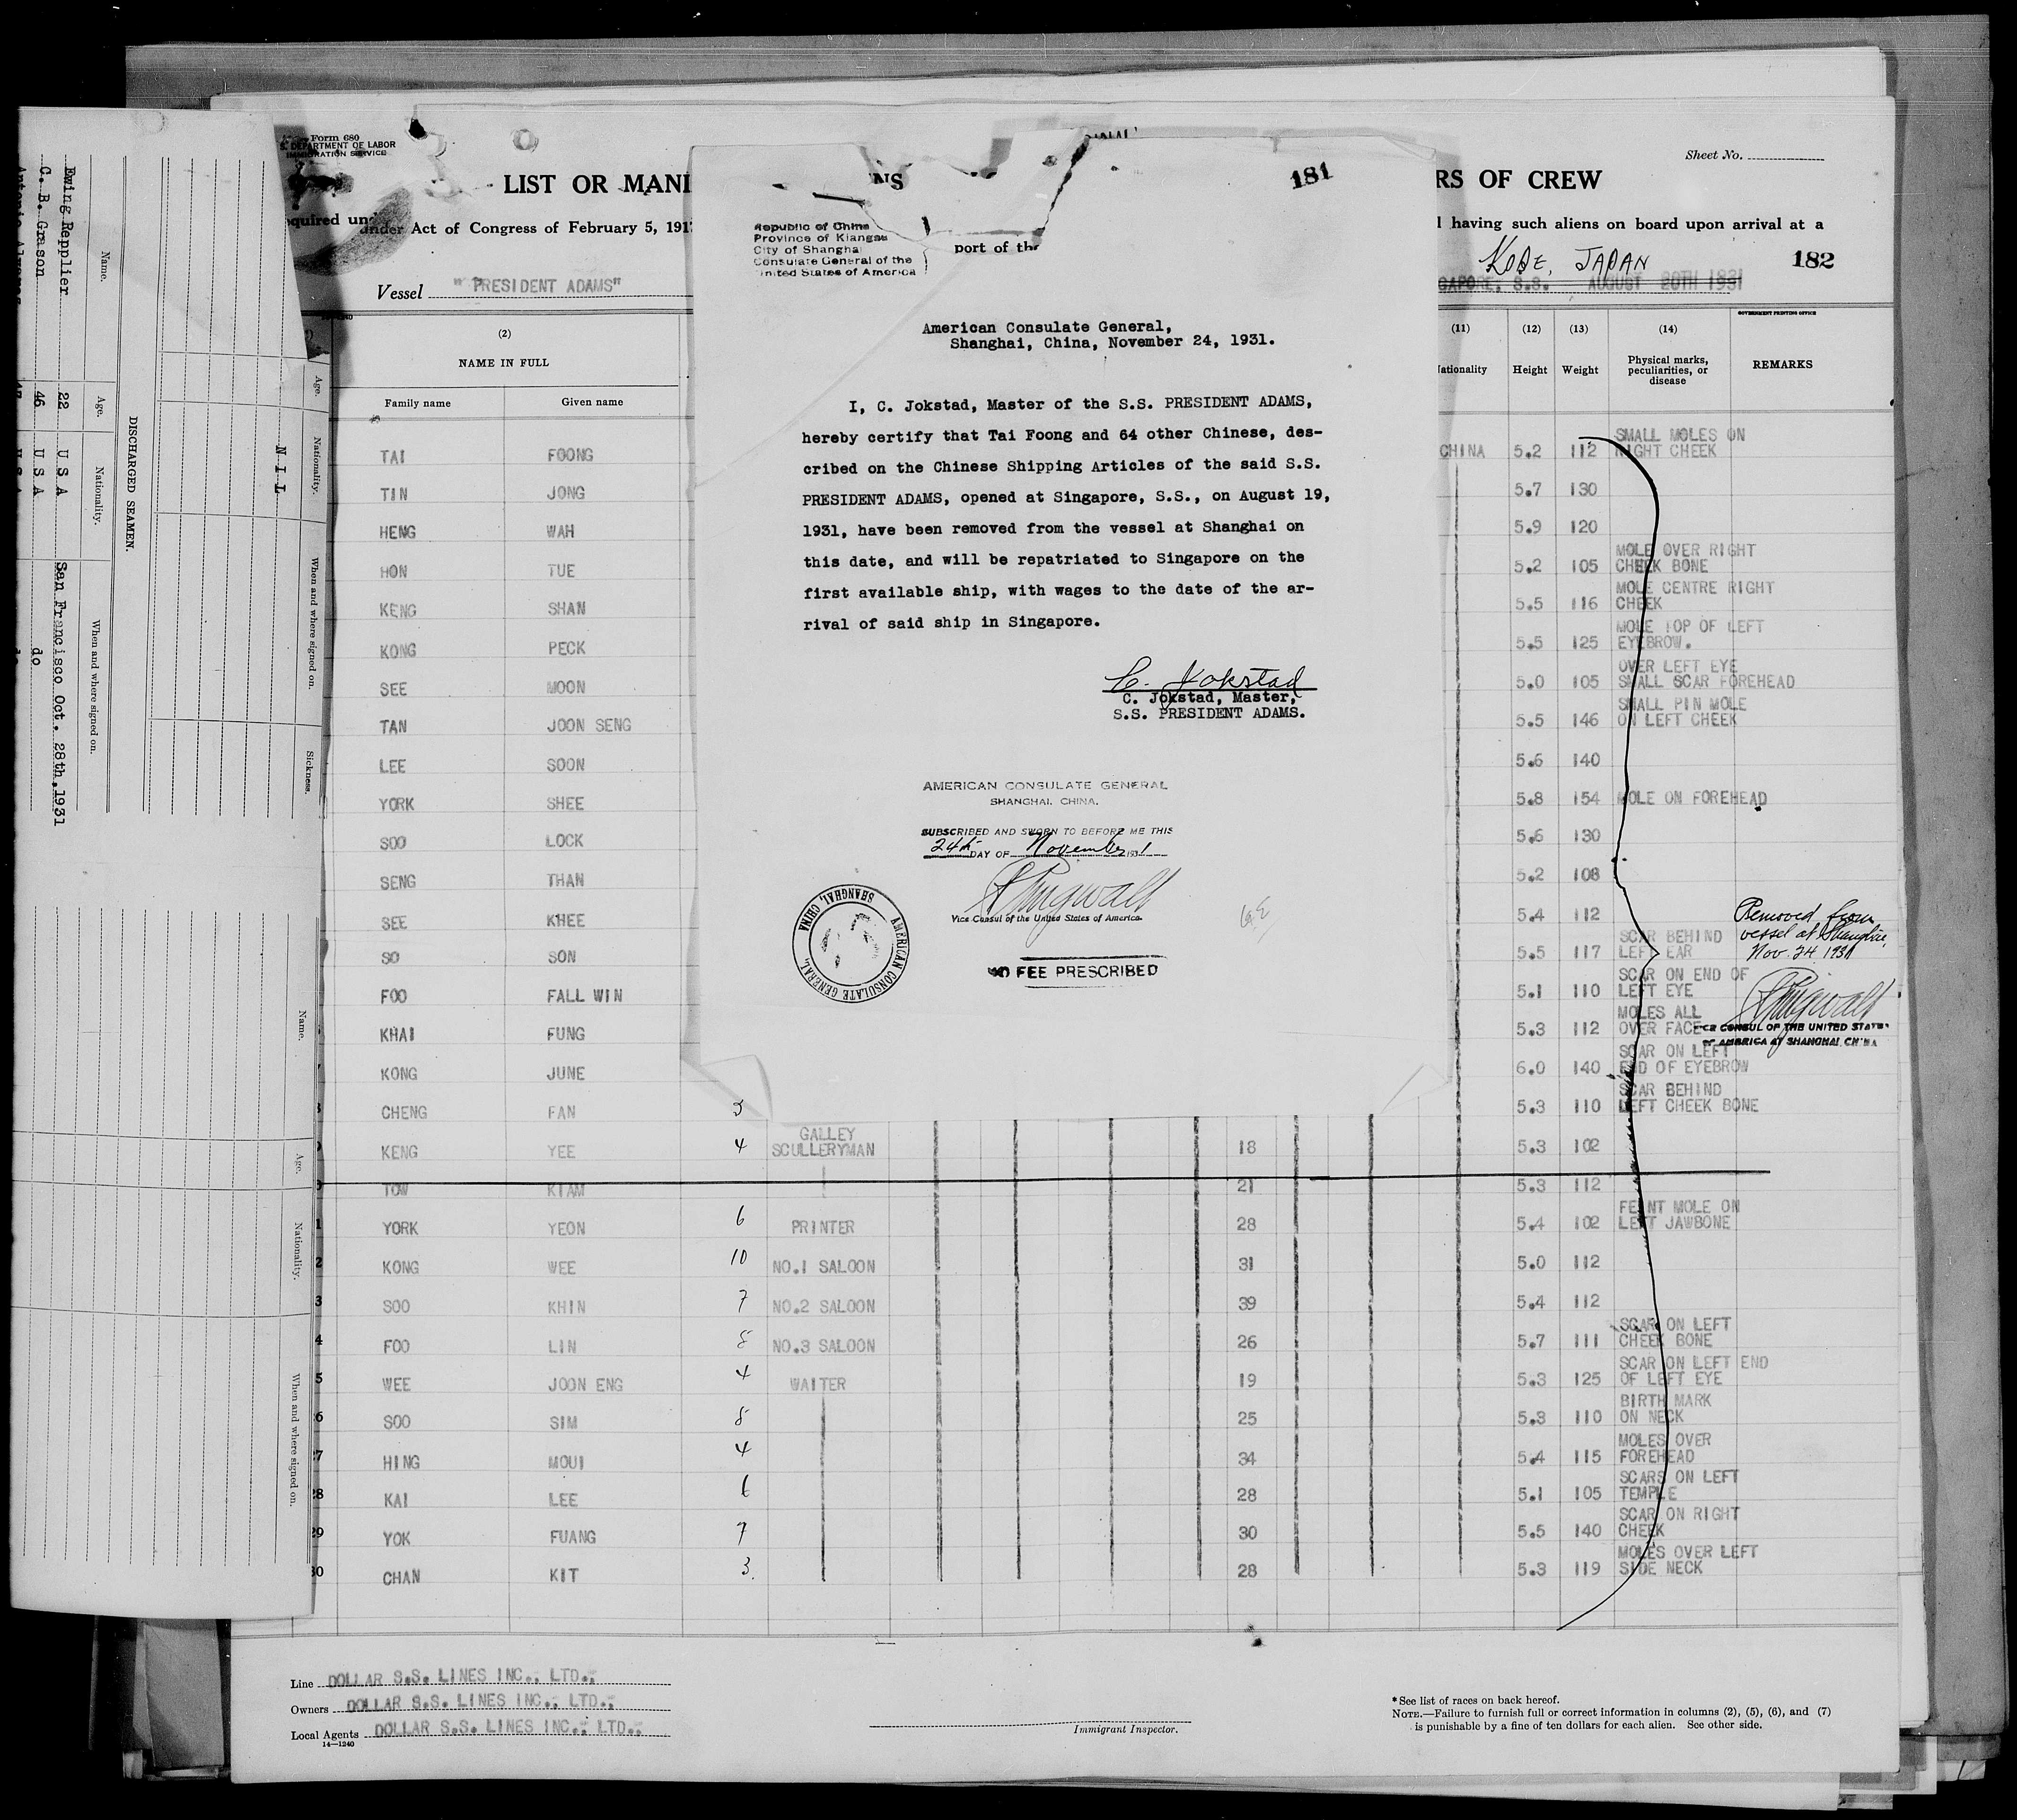 Form 680
DEPARTMENT OF LABOR
IMMIGRATION SERVICE
Sheet No.
LIST OR MANI
NS
RS OF CREW
181
182
quired under Act of Congress of February 5, 191
port of the
l having such aliens on board upon arrival at a
Vessel "PRESIDENT ADAMS"
KOBE, JAPAN
GAPORE, S.S. AUGUST 20TH 1931
GOVERNMENT PRINTING OFFICE
(2) (11) (12) (13) (14)
NAME IN FULL
Family name Given name
ationality Height Weight Physical marks, peculiarities, or disease REMARKS
TAI FOONG CHINA 5.2 112 SMALL MOLES ON RIGHT CHEEK
TIN JONG 5.7 130
HENG WAH 5.9 120
HON TUE 5.2 105 MOLE OVER RIGHT CHEEK BONE
KENG SHAN 5.5 116 MOLE CENTRE RIGHT CHEEK
KONG PECK 5.5 125 MOLE TOP OF LEFT EYEBROW.
SEE MOON 5.0 105 OVER LEFT EYE SMALL SCAR FOREHEAD
TAN JOON SENG 5.5 146 SMALL PIN MOLE ON LEFT CHEEK
LEE SOON 5.6 140
YORK SHEE 5.8 154 MOLE ON FOREHEAD
SOO LOCK 5.6 130
SENG THAN 5.2 108
SEE KHEE 5.4 112
SO SON 5.5 117 SCAR BEHIND LEFT EAR
FOO FALL WIN 5.1 110 SCAR ON END OF LEFT EYE
KHAI FUNG 5.3 112 MOLES ALL OVER FACE
KONG JUNE 6.0 140 SCAR ON LEFT END OF EYEBROW
CHENG FAN 3 5.3 110 SCAR BEHIND LEFT CHEEK BONE
KENG YEE 4 GALLEY SCULLERYMAN 18 5.3 102
TOW KIAM 21 5.3 112
YORK YEON 6 PRINTER 28 5.4 102 FEINT MOLE ON LEFT JAWBONE
2 KONG WEE 10 NO.1 SALOON 31 5.0 112
3 SOO KHIN 7 NO.2 SALOON 39 5.4 112
4 FOO LIN 8 NO.3 SALOON 26 5.7 111 SCAR ON LEFT CHEEK BONE
5 WEE JOON ENG 4 WAITER 19 5.3 125 SCAR ON LEFT END OF LEFT EYE
6 SOO SIM 8 25 5.3 110 BIRTH MARK ON NECK
7 HING MOUI 4 34 5.4 115 MOLES OVER FOREHEAD
28 KAI LEE 6 28 5.1 105 SCARS ON LEFT TEMPLE
29 YOK FUANG 7 30 5.5 140 SCAR ON RIGHT CHEEK
30 CHAN KIT 3. 28 5.3 119 MOLES OVER LEFT SIDE NECK
Removed from
vessel at Shanghai,
Nov. 24 1931
VICE CONSUL OF THE UNITED STATES
OF AMERICA AT SHANGHAI, CHINA
Republic of China
Province of Kiangsu
City of Shanghai
Consulate General of the
United States of America
American Consulate General,
Shanghai, China, November 24, 1931.
I, C. Jokstad, Master of the S.S. PRESIDENT ADAMS,
hereby certify that Tai Foong and 64 other Chinese, des-
cribed on the Chinese Shipping Articles of the said S.S.
PRESIDENT ADAMS, opened at Singapore, S.S., on August 19,
1931, have been removed from the vessel at Shanghai on
this date, and will be repatriated to Singapore on the
first available ship, with wages to the date of the ar-
rival of said ship in Singapore.
C. Jokstad
C. Jokstad, Master,
S.S. PRESIDENT ADAMS.
AMERICAN CONSULATE GENERAL
SHANGHAI, CHINA.
SUBSCRIBED AND SWORN TO BEFORE ME THIS
24th DAY OF November 1931
Vice Consul of the United States of America.
AMERICAN CONSULATE GENERAL, SHANGHAI, CHINA
NO FEE PRESCRIBED
Line DOLLAR S.S. LINES INC., LTD.,
Owners DOLLAR S.S. LINES INC., LTD.,
Local Agents DOLLAR S.S. LINES INC., LTD.,
14—1240
Immigrant Inspector.
*See list of races on back hereof.
NOTE.—Failure to furnish full or correct information in columns (2), (5), (6), and (7)
is punishable by a fine of ten dollars for each alien. See other side.
DISCHARGED SEAMEN.
Name. Age. Nationality. When and where signed on.
Ewing Repplier 22 U S A San Francisco Oct. 28th, 1931
C. B. Grason 46 U S A do
Age. Nationality. When and where signed on. Sickness.
NIL
Name. Age. Nationality. When and where signed on.